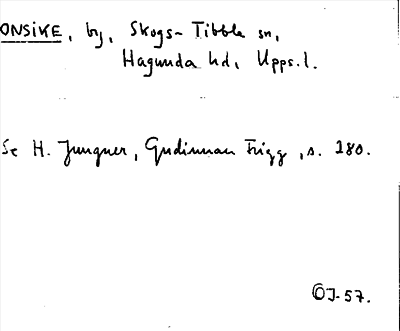 ONSIKE, by, Skogs-Tibble sn,
Hagunda hd, Upps.l.
Se H. Jungner, Gudinnan Frigg, s. 280.
OJ-57.